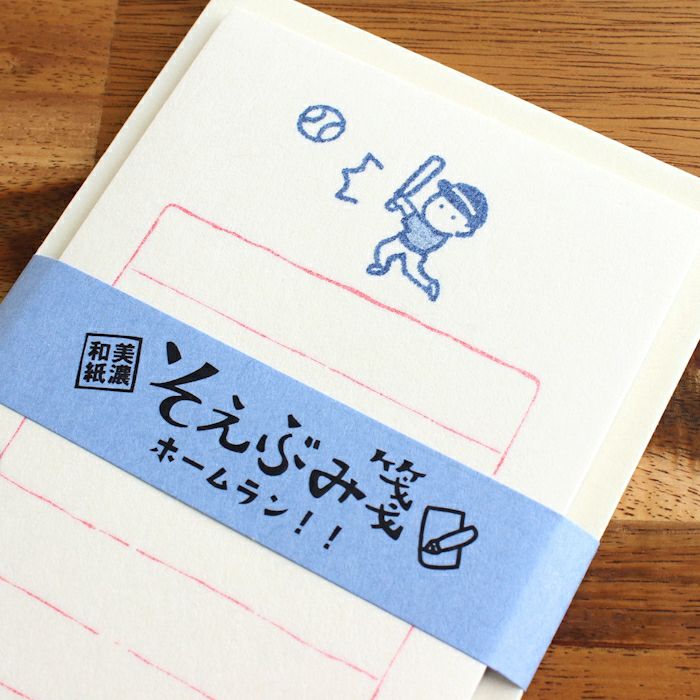 美濃
和紙
そえぶみ箋
ホームラン！！